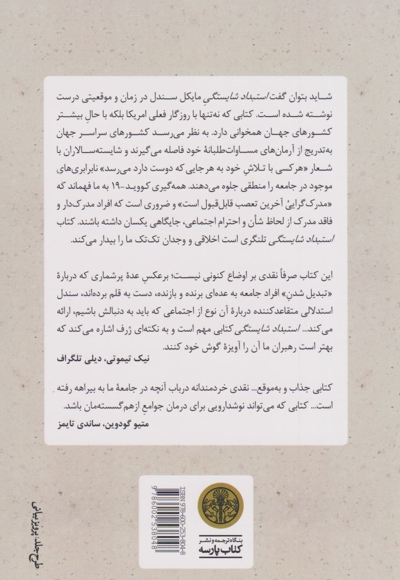 شاید بتوان گفت استبداد شایستگیِ مایکل سندل در زمان و موقعیتی درست
نوشته شده است. کتابی که نه‌تنها با روزگار فعلی امریکا بلکه با حالِ بیشتر
کشورهای جهان همخوانی دارد. به نظر می‌رسد کشورهای سراسر جهان
به‌تدریج از آرمان‌های مساوات‌طلبانهٔ خود فاصله می‌گیرند و شایسته‌سالاران با
شعار «هرکسی با تلاشِ خود به هرجایی که دوست دارد می‌رسد» نابرابری‌های
موجود در جامعه را منطقی جلوه می‌دهند. همه‌گیری کووید-۱۹ به ما فهماند که
«مدرک‌گرایی آخرین تعصب قابل‌قبول است» و ضروری است که افراد مدرک‌دار و
فاقد مدرک از لحاظ شأن و احترام اجتماعی، جایگاهی یکسان داشته باشند. کتاب
استبداد شایستگی تلنگری است اخلاقی و وجدان تک‌تک ما را بیدار می‌کند.
این کتاب صرفاً نقدی بر اوضاع کنونی نیست؛ برعکسِ عدهٔ پرشماری که دربارهٔ
«تبدیل شدنِ» افراد جامعه به عده‌ای برنده و بازنده، دست به قلم برده‌اند، سندل
استدلالی متقاعدکننده دربارهٔ آن نوع از اجتماعی که باید به دنبالش باشیم، ارائه
می‌کند... استبداد شایستگی کتابی مهم است و به نکته‌ای ژرف اشاره می‌کند که
بهتر است رهبران ما آن را آویزهٔ گوش خود کنند.
نیک تیموتی، دیلی تلگراف
کتابی جذاب و به‌موقع... نقدی خردمندانه درباب آنچه در جامعهٔ ما به بیراهه رفته
است... کتابی که می‌تواند نوشدارویی برای درمان جوامع ازهم‌گسسته‌مان باشد.
متیو گودوین، ساندی تایمز
بنگاه ترجمه و نشر
کتاب پارسه
ISBN: 978-600-253-804-8
9786002538048
طرح جلد: پرویز بیانی